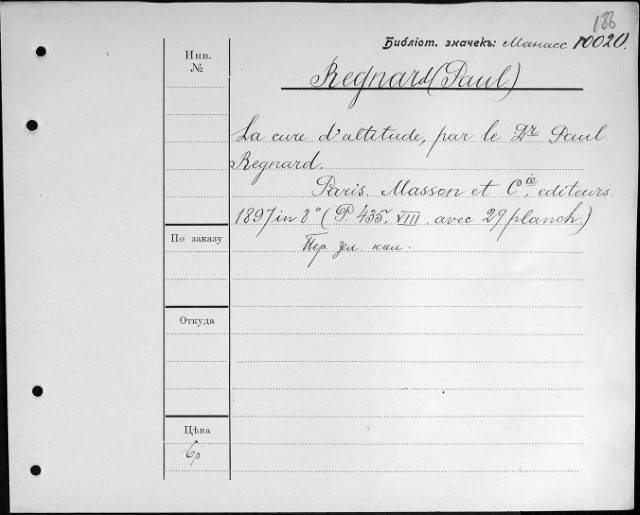 186
Библіот. значекъ: Манасс 10020.
Инв.
№
Regnard (Paul)
La cure d'altitude, par le Dr Paul
Regnard.
Paris. Masson et Cie, editeurs.
1897 in 8° (P. 435, VIII avec 29 planch.)
По заказу
Пер. зел. кол.
Откуда
Цѣна
6р